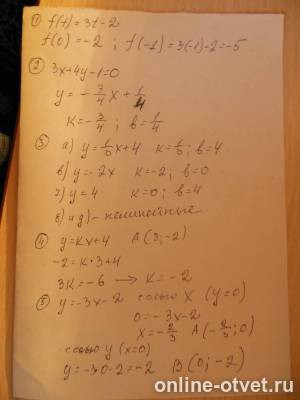 ① f(t) = 3t - 2
f(0) = -2 ; f(-1) = 3(-1) - 2 = -5
② 3x + 4y - 1 = 0
y = -3/4 x + 1/4
k = -3/4 ; b = 1/4
③ а) y = 1/3 x + 4 k = 1/3 ; b = 4
в) y = -2x k = -2 ; b = 0
г) y = 4 k = 0 ; b = 4
б) и д) - нелинейные
④ y = kx + 4 A(3; -2)
-2 = k·3 + 4
3k = -6 → k = -2
⑤ y = -3x - 2 с осью X (y = 0)
0 = -3x - 2
x = -2/3 A(-2/3; 0)
с осью y (x = 0)
y = -3·0 - 2 = -2 B(0; -2)
online-otvet.ru